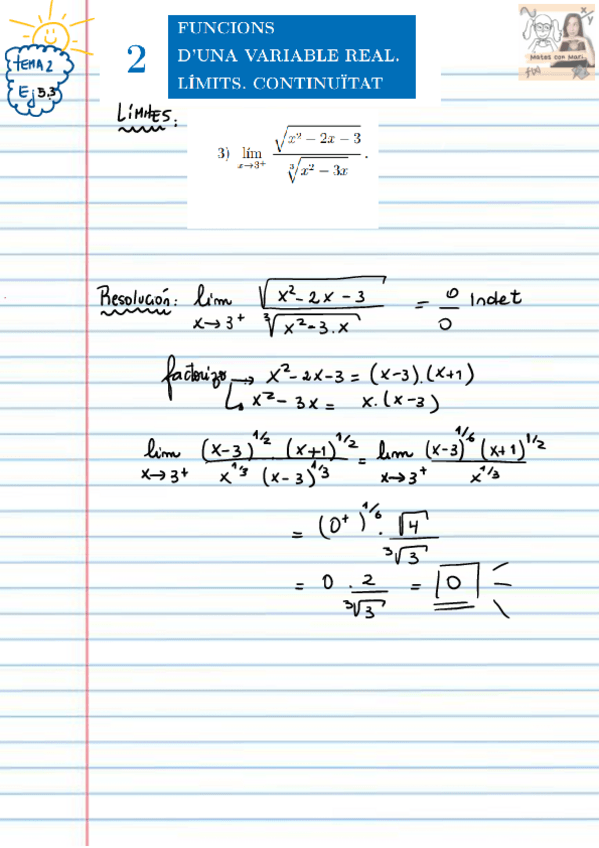 TEMA 2
Ej 5.3
2
FUNCIONS
D'UNA VARIABLE REAL.
LÍMITS. CONTINUÏTAT
Mates con Mari
LÍMITES:
3) lím x→3⁺ √(x² − 2x − 3) / ∛(x² − 3x) .
Resolución: lim x→3⁺ √(x² − 2x − 3) / ∛(x² − 3.x) = 0/0 Indet
factorizo → x² − 2x − 3 = (x−3).(x+1)
↳ x² − 3x = x.(x−3)
lim x→3⁺ (x−3)^1/2 . (x+1)^1/2 / x^1/3 (x−3)^1/3 = lim x→3⁺ (x−3)^1/6 (x+1)^1/2 / x^1/3
= (0⁺)^1/6 . √4 / ∛3
= 0 . 2 / ∛3 = 0